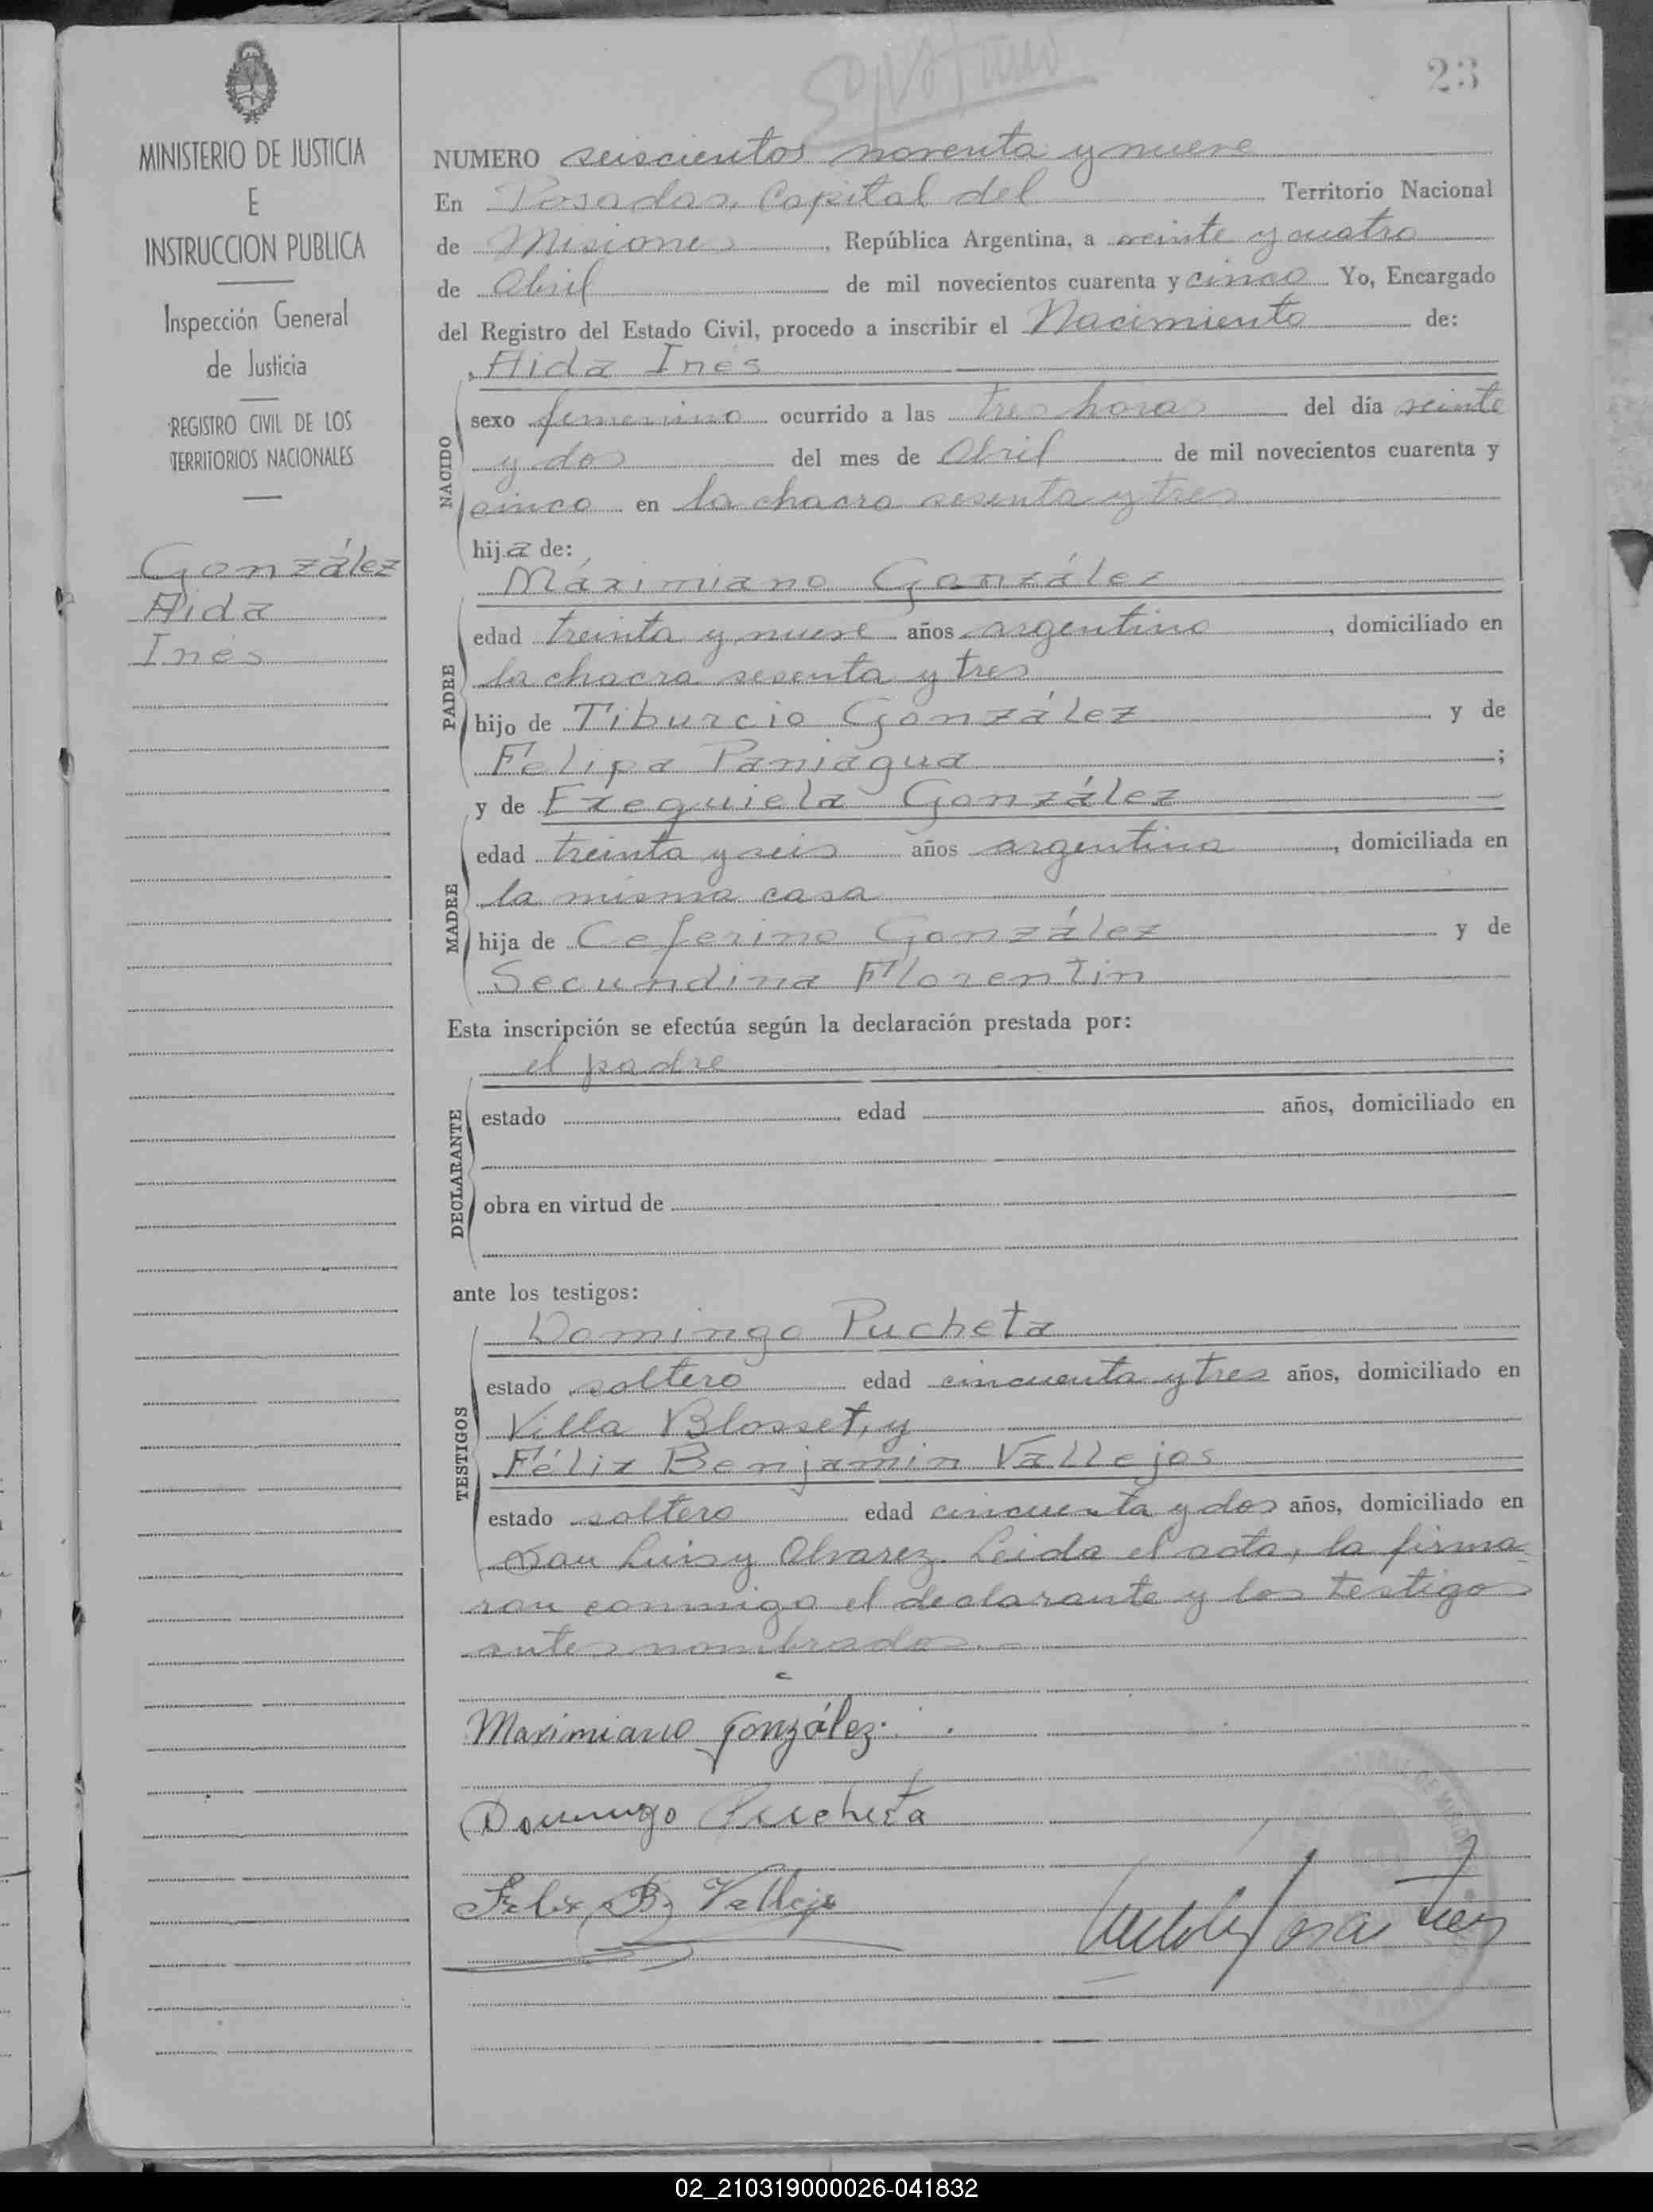 23
MINISTERIO DE JUSTICIA
E
INSTRUCCION PUBLICA
Inspección General
de Justicia
REGISTRO CIVIL DE LOS
TERRITORIOS NACIONALES
González
Aida
Inés
NUMERO seiscientos noventa y nueve
En Posadas, Capital del Territorio Nacional
de Misiones, República Argentina, a veinte y cuatro
de Abril de mil novecientos cuarenta y cinco Yo, Encargado
del Registro del Estado Civil, procedo a inscribir el Nacimiento de:
Aida Inés
NACIDO
sexo femenino ocurrido a las tres horas del día veinte
y dos del mes de Abril de mil novecientos cuarenta y
cinco en la chacra sesenta y tres
hija de:
Máximiano González
PADRE
edad treinta y nueve años argentino, domiciliado en
la chacra sesenta y tres
hijo de Tiburcio González y de
Felipa Paniagua;
y de Exequiela González
MADRE
edad treinta y seis años argentina, domiciliada en
la misma casa
hija de Ceferino González y de
Secundina Florentin
Esta inscripción se efectúa según la declaración prestada por:
el padre
DECLARANTE
estado edad años, domiciliado en
obra en virtud de
ante los testigos:
Domingo Pucheta
TESTIGOS
estado soltero edad cincuenta y tres años, domiciliado en
Villa Blosset, y
Félix Benjamin Vallejos
estado soltero edad cincuenta y dos años, domiciliado en
San Luis y Alvarez. Leida el acta, la firma
ron conmigo el declarante y los testigos
antes nombrados.
Maximiano González.
Domingo Pucheta
Felix B. Vallejo
02_210319000026-041832